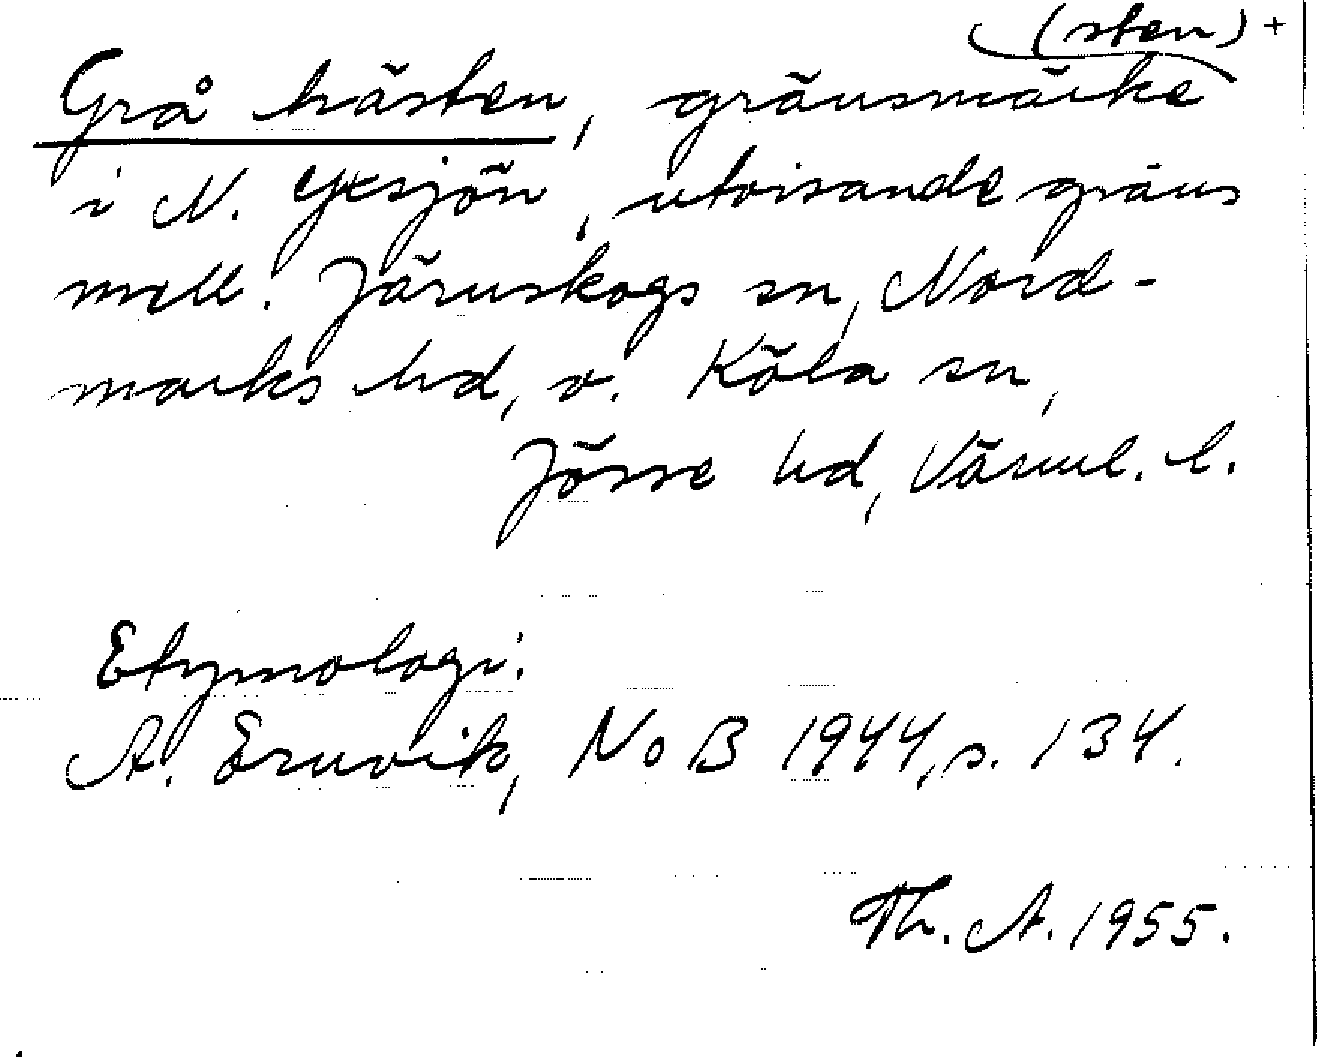 (sten) +
Grå hästen, gränsmärke
i N. Yxsjön, utvisande gräns
mell. Järnskogs sn, Nord-
marks hd, o. Köla sn,
Jösse hd, Värml. l.
Etymologi:
A. Ernvik, NoB 1944, s. 134.
Th. A. 1955.